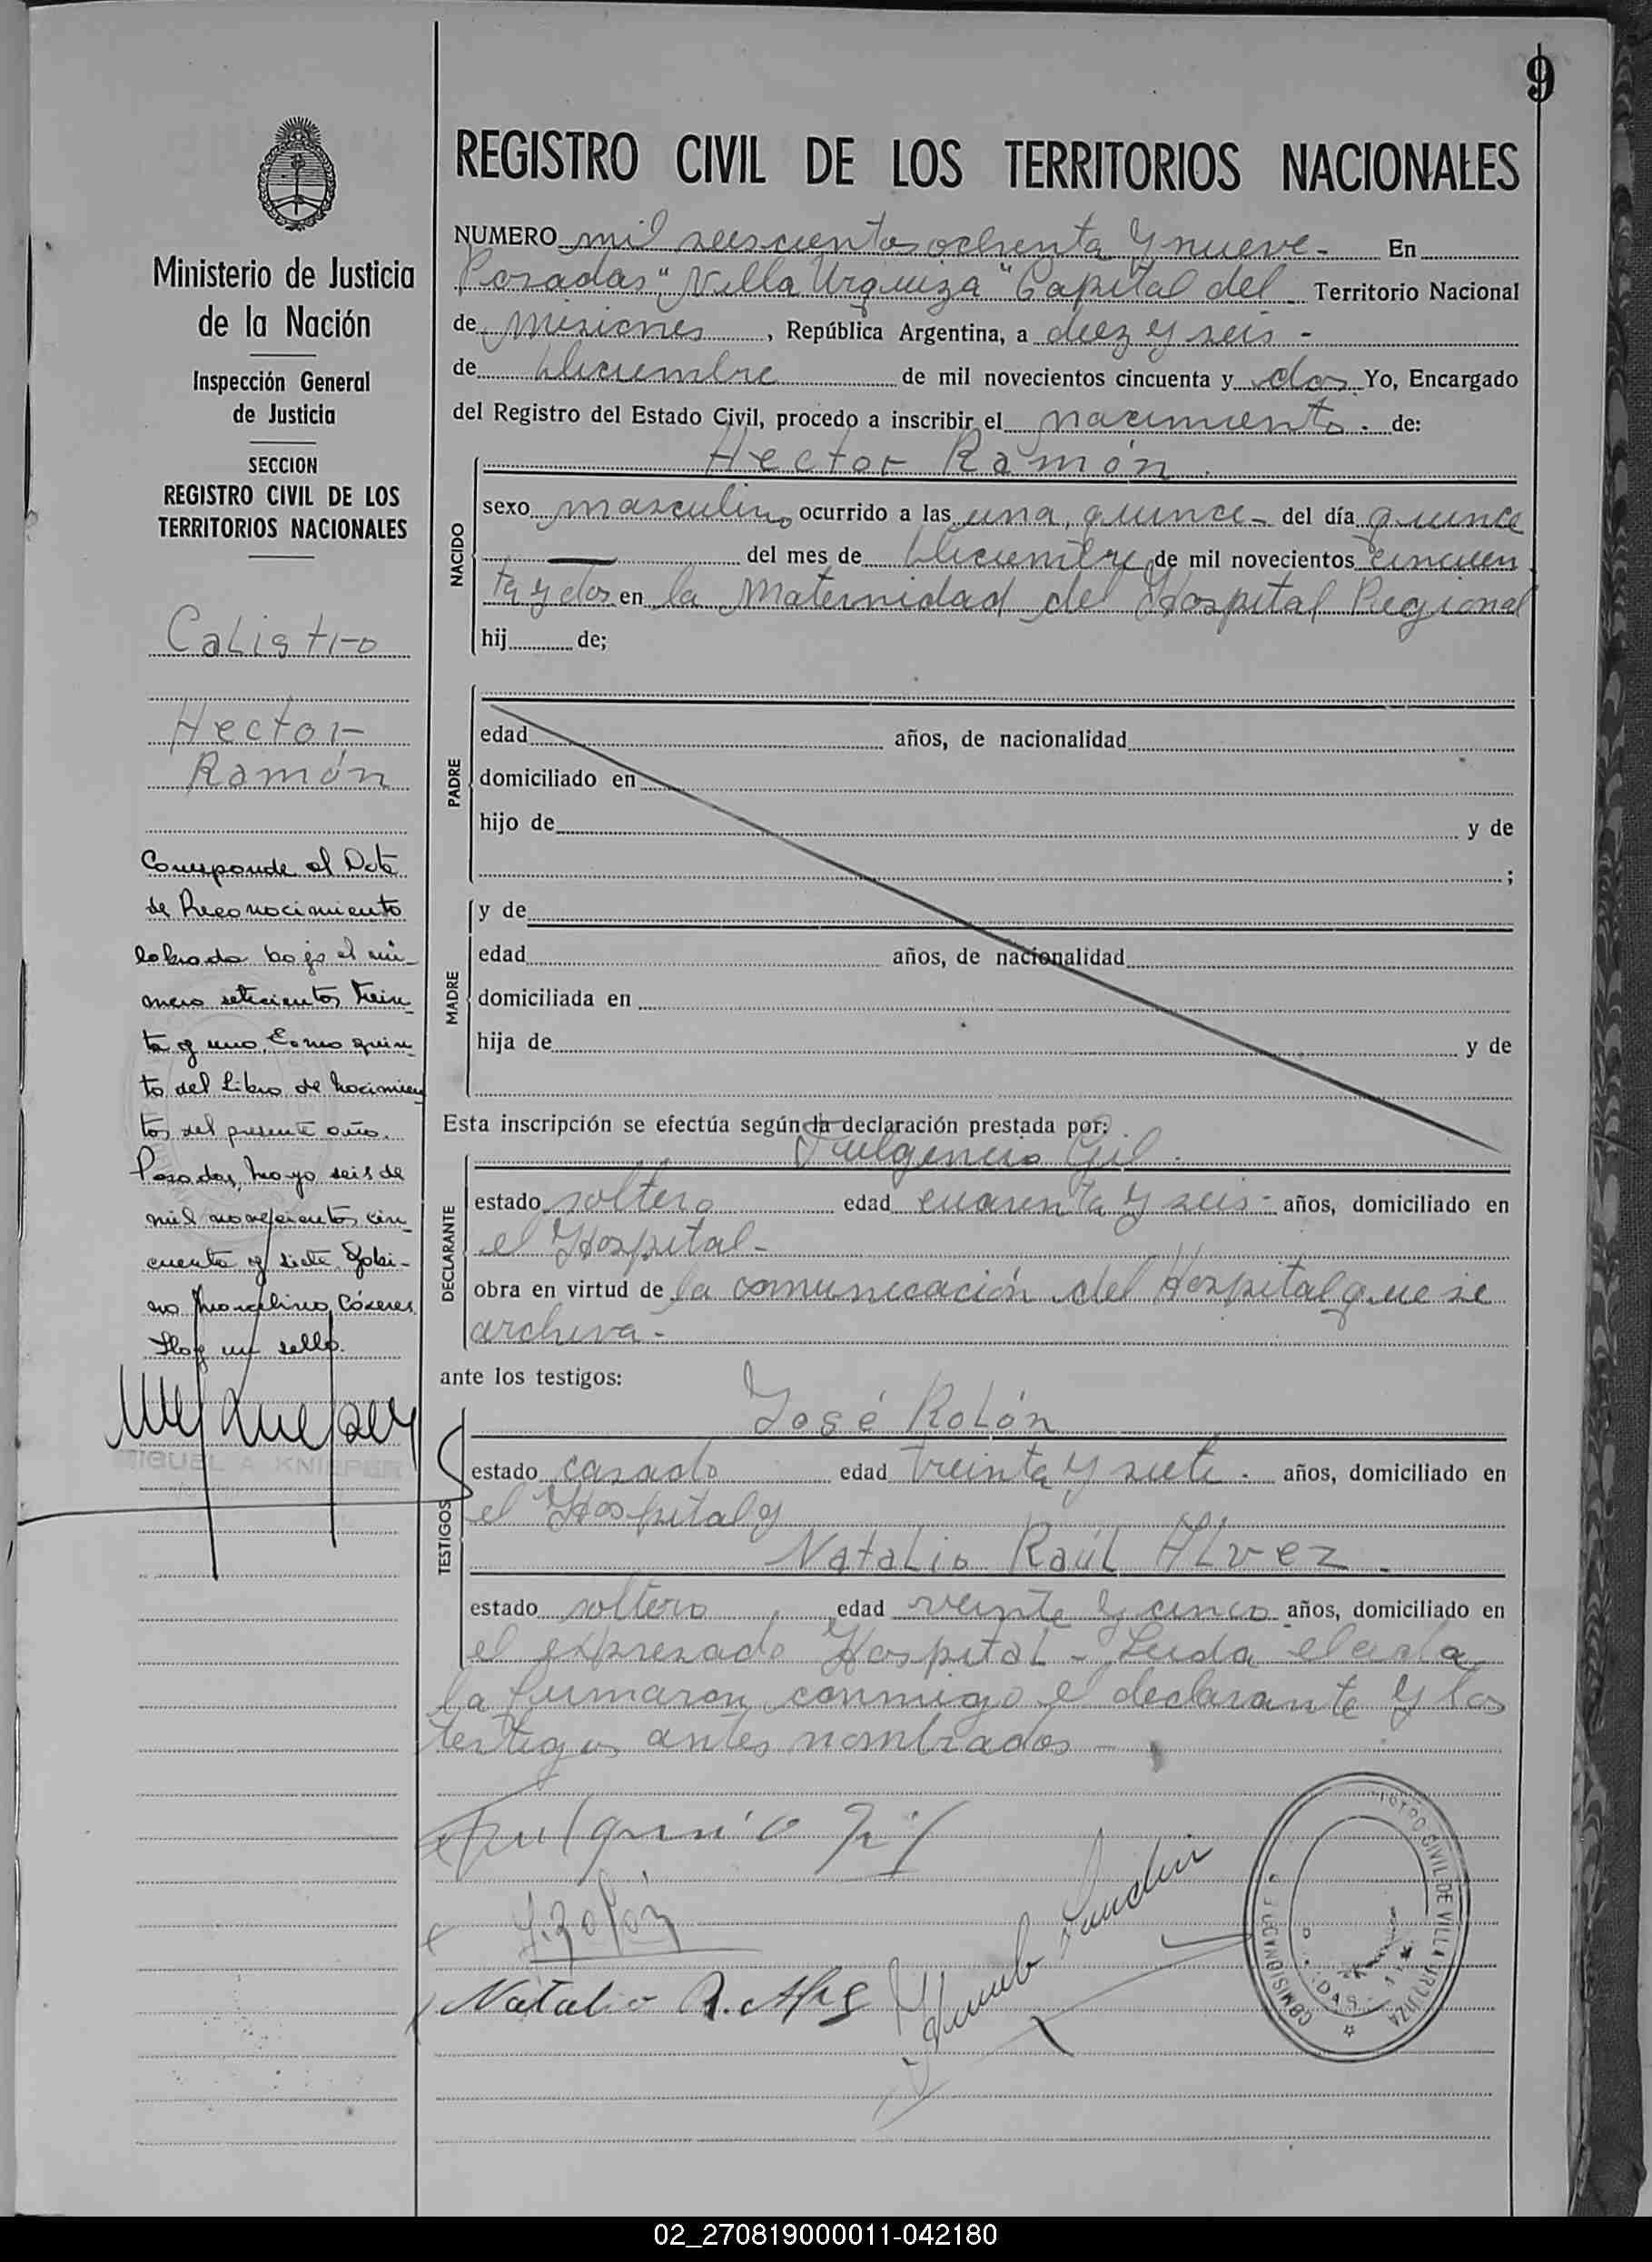 9
REGISTRO CIVIL DE LOS TERRITORIOS NACIONALES
Ministerio de Justicia
de la Nación
Inspección General
de Justicia
SECCION
REGISTRO CIVIL DE LOS
TERRITORIOS NACIONALES
Calistro
Hector
Ramón
Corresponde al Acta
de Reconocimiento
labrada bajo el nú-
mero setecientos trein
ta y uno, Tomo quin
to del Libro de Nacimien
tos del presente año.
Posadas, Mayo seis de
mil novecientos cin
cuenta y siete. Gabi-
no Marcelino Cáceres
Hay un sello.
MIGUEL A. KNIEPER
NUMERO mil seiscientos ochenta y nueve - En
Posadas "Villa Urquiza" Capital del Territorio Nacional
de Misiones, República Argentina, a diez y seis -
de Diciembre de mil novecientos cincuenta y dos Yo, Encargado
del Registro del Estado Civil, procedo a inscribir el nacimiento de:
Hector Ramón
NACIDO
sexo masculino ocurrido a las una, quince - del día quince
del mes de Diciembre de mil novecientos cincuen
ta y dos en la Maternidad del Hospital Regional
hij de;
PADRE
edad años, de nacionalidad
domiciliado en
hijo de y de
;
MADRE
y de
edad años, de nacionalidad
domiciliada en
hija de y de
Esta inscripción se efectúa según la declaración prestada por:
DECLARANTE
Fulgencio Gil.
estado soltero edad cuarenta y seis - años, domiciliado en
el Hospital -
obra en virtud de la comunicación del Hospital que se
archiva -
ante los testigos:
TESTIGOS
José Rolón
estado casado edad treinta y siete - años, domiciliado en
el Hospital y
Natalio Raúl Alvez -
estado soltero, edad veinte y cinco años, domiciliado en
el expresado Hospital - Leida el acta
la firmaron conmigo el declarante y los
testigos antes nombrados -
Fulgencio Gil
J. Rolón
Natalio R. Alvez
CIVIL DE VILLA URQUIZA
02_270819000011-042180